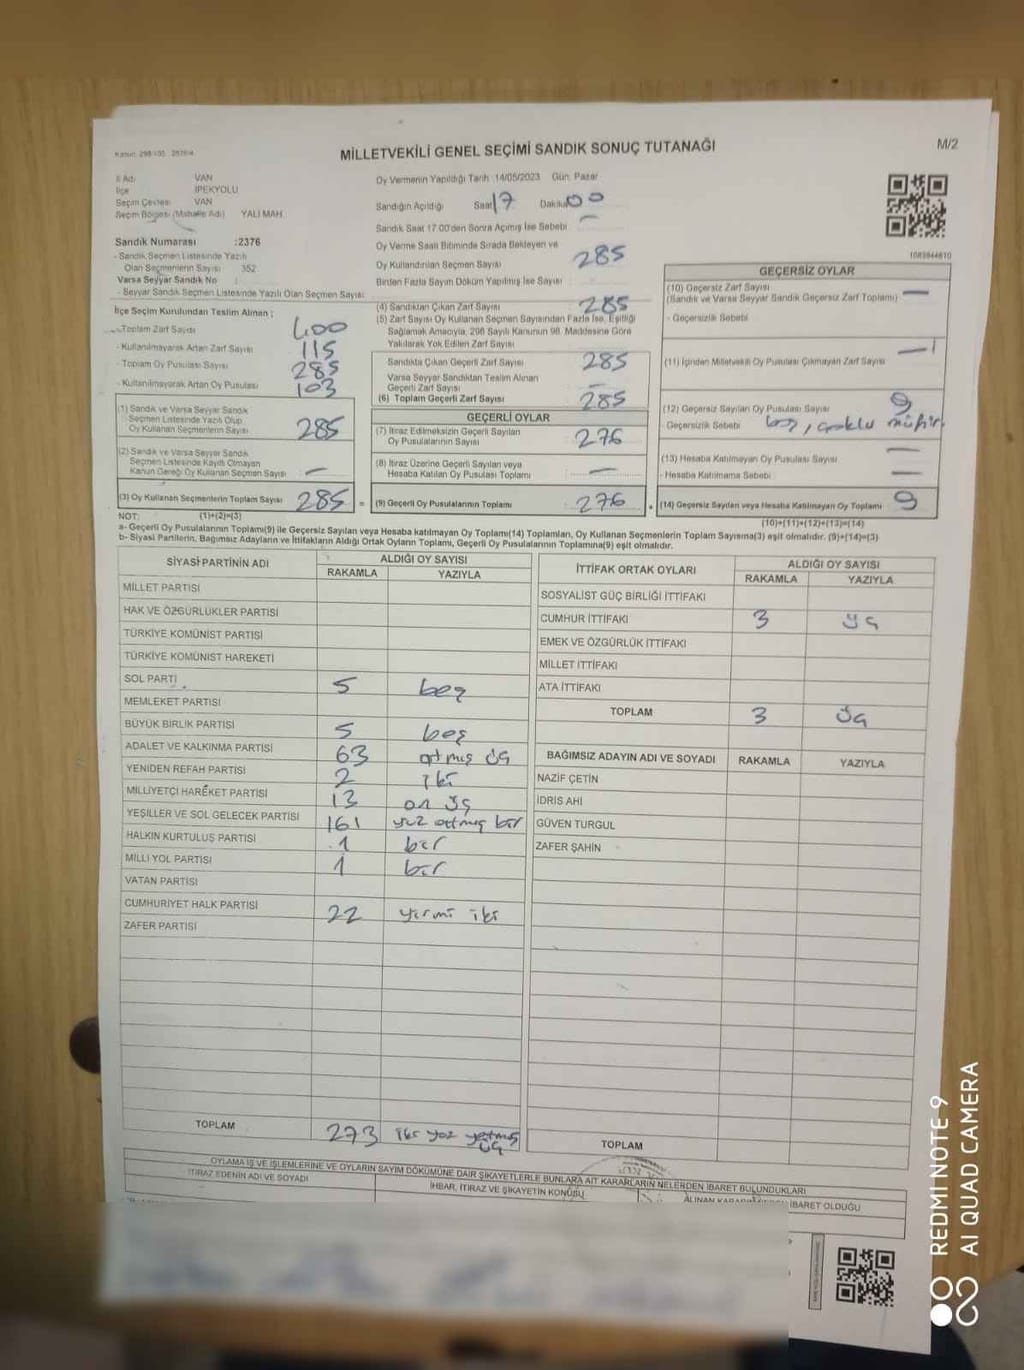 MİLLETVEKİLİ GENEL SEÇİMİ SANDIK SONUÇ TUTANAĞI
M/2
İl Adı VAN
İlçe İPEKYOLU
Seçim Çevresi VAN
Seçim Bölgesi (Mahalle Adı) YALI MAH.
Sandık Numarası :2376
- Sandık Seçmen Listesinde Yazılı
Olan Seçmenlerin Sayısı : 352
Varsa Seyyar Sandık No :
- Seyyar Sandık Seçmen Listesinde Yazılı Olan Seçmen Sayısı
Oy Vermenin Yapıldığı Tarih :14/05/2023 Gün: Pazar
Sandığın Açıldığı Saat 17 Dakika 00
Sandık Saat 17.00'den Sonra Açımış İse Sebebi —
Oy Verme Saati Bitiminde Sırada Bekleyen ve
Oy Kullandırılan Seçmen Sayısı 285
Birden Fazla Sayım Döküm Yapılmış İse Sayısı
1083844810
İlçe Seçim Kurulundan Teslim Alınan ;
- Toplam Zarf Sayısı 400
- Kullanılmayarak Artan Zarf Sayısı 115
- Toplam Oy Pusulası Sayısı 285
- Kullanılmayarak Artan Oy Pusulası 103
(1) Sandık ve Varsa Seyyar Sandık
Seçmen Listesinde Yazılı Olup
Oy Kullanan Seçmenlerin Sayısı 285
(2) Sandık ve Varsa Seyyar Sandık
Seçmen Listesinde Kayıtlı Olmayan
Kanun Gereği Oy Kullanan Seçmen Sayısı —
(3) Oy Kullanan Seçmenlerin Toplam Sayısı 285 =
(1)+(2)=(3)
(4) Sandıktan Çıkan Zarf Sayısı 285
(5) Zarf Sayısı Oy Kullanan Seçmen Sayısından Fazla İse, Eşitliği
Sağlamak Amacıyla, 298 Sayılı Kanunun 98. Maddesine Göre
Yakılarak Yok Edilen Zarf Sayısı
Sandıkta Çıkan Geçerli Zarf Sayısı 285
Varsa Seyyar Sandıktan Teslim Alınan
Geçerli Zarf Sayısı —
(6) Toplam Geçerli Zarf Sayısı 285
GEÇERLİ OYLAR
(7) İtiraz Edilmeksizin Geçerli Sayılan
Oy Pusulalarının Sayısı 276
(8) İtiraz Üzerine Geçerli Sayılan veya
Hesaba Katılan Oy Pusulası Toplamı —
(9) Geçerli Oy Pusulalarının Toplamı 276 +
GEÇERSİZ OYLAR
(10) Geçersiz Zarf Sayısı —
(Sandık ve Varsa Seyyar Sandık Geçersiz Zarf Toplamı)
- Geçersizlik Sebebi
(11) İçinden Milletvekili Oy Pusulası Çıkmayan Zarf Sayısı —
(12) Geçersiz Sayılan Oy Pusulası Sayısı 9
Geçersizlik Sebebi boş, çoklu mühür.
(13) Hesaba Katılmayan Oy Pusulası Sayısı —
- Hesaba Katılmama Sebebi —
(14) Geçersiz Sayılan veya Hesaba Katılmayan Oy Toplamı 9
(10)+(11)+(12)+(13)=(14)
NOT:
a- Geçerli Oy Pusulalarının Toplamı(9) ile Geçersiz Sayılan veya Hesaba katılmayan Oy Toplamı(14) Toplamları, Oy Kullanan Seçmenlerin Toplam Sayısına(3) eşit olmalıdır. (9)+(14)=(3)
b- Siyasi Partilerin, Bağımsız Adayların ve İttifakların Aldığı Ortak Oyların Toplamı, Geçerli Oy Pusulalarının Toplamına(9) eşit olmalıdır.
SİYASİ PARTİNİN ADI ALDIĞI OY SAYISI
RAKAMLA YAZIYLA
MİLLET PARTİSİ
HAK VE ÖZGÜRLÜKLER PARTİSİ
TÜRKİYE KOMÜNİST PARTİSİ
TÜRKİYE KOMÜNİST HAREKETİ
SOL PARTİ 5 beş
MEMLEKET PARTİSİ
BÜYÜK BİRLİK PARTİSİ 5 beş
ADALET VE KALKINMA PARTİSİ 63 atmış üç
YENİDEN REFAH PARTİSİ 2 iki
MİLLİYETÇİ HAREKET PARTİSİ 13 on üç
YEŞİLLER VE SOL GELECEK PARTİSİ 161 yüz atmış bir
HALKIN KURTULUŞ PARTİSİ 1 bir
MİLLİ YOL PARTİSİ 1 bir
VATAN PARTİSİ
CUMHURİYET HALK PARTİSİ 22 yirmi iki
ZAFER PARTİSİ
TOPLAM 273 iki yüz yetmiş üç
İTTİFAK ORTAK OYLARI ALDIĞI OY SAYISI
RAKAMLA YAZIYLA
SOSYALİST GÜÇ BİRLİĞİ İTTİFAKI
CUMHUR İTTİFAKI 3 üç
EMEK VE ÖZGÜRLÜK İTTİFAKI
MİLLET İTTİFAKI
ATA İTTİFAKI
TOPLAM 3 üç
BAĞIMSIZ ADAYIN ADI VE SOYADI RAKAMLA YAZIYLA
NAZİF ÇETİN
İDRİS AHI
GÜVEN TURGUL
ZAFER ŞAHİN
TOPLAM
OYLAMA İŞ VE İŞLEMLERİNE VE OYLARIN SAYIM DÖKÜMÜNE DAİR ŞİKAYETLERLE BUNLARA AİT KARARLARIN NELERDEN İBARET BULUNDUKLARI
İTİRAZ EDENİN ADI VE SOYADI
İHBAR, İTİRAZ VE ŞİKAYETİN KONUSU
İBARET OLDUĞU
REDMI NOTE 9
AI QUAD CAMERA